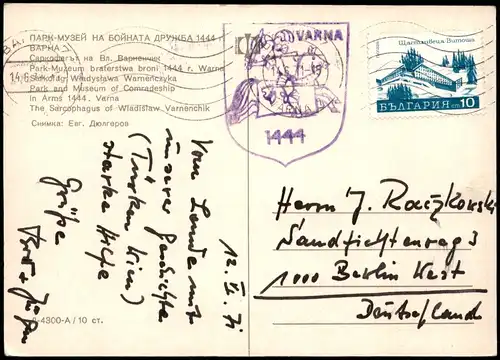 ПАРК-МУЗЕЙ НА БОЙНАТА ДРУЖБА 1444 г.
ВАРНА
Саркофагът на Вл. Варненчик
Park-Muzeum braterstwa broni 1444 r. Warna
Sarkofag Władysława Warneńczyka
Park and Museum of Comradeship
in Arms 1444. Varna
The Sarcophagus of Wladislaw Varnenchik
Снимка: Евг. Дюлгеров
VARNA
1444
Щастливеца Витоша
БЪЛГАРИЯ cm 10
12. VI. 71
Vom Lande mit
unserer Geschichte
(Türken Wien)
starke Hilfe
Grüße
Herrn J. Raczkowski
Sandfichtenweg 3
1000 Berlin West
Deutschland
Д-4300-А / 10 ст.